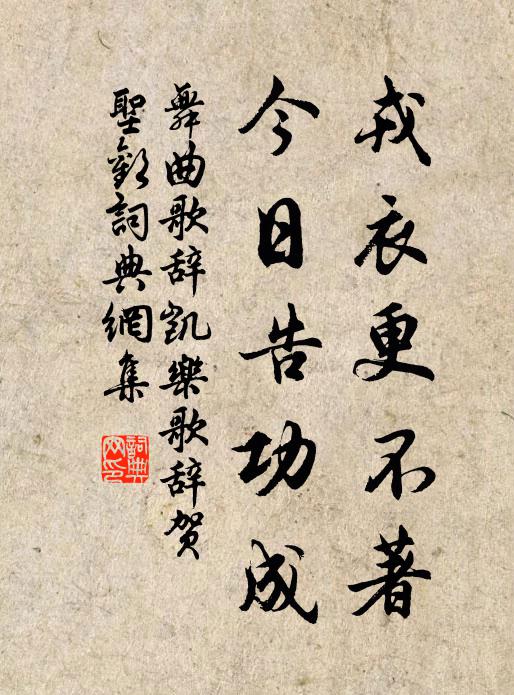 戎衣更不著
今日告功成
舞曲歌辞凱樂歌辞贺
聖歡詞典網集
詞典网印